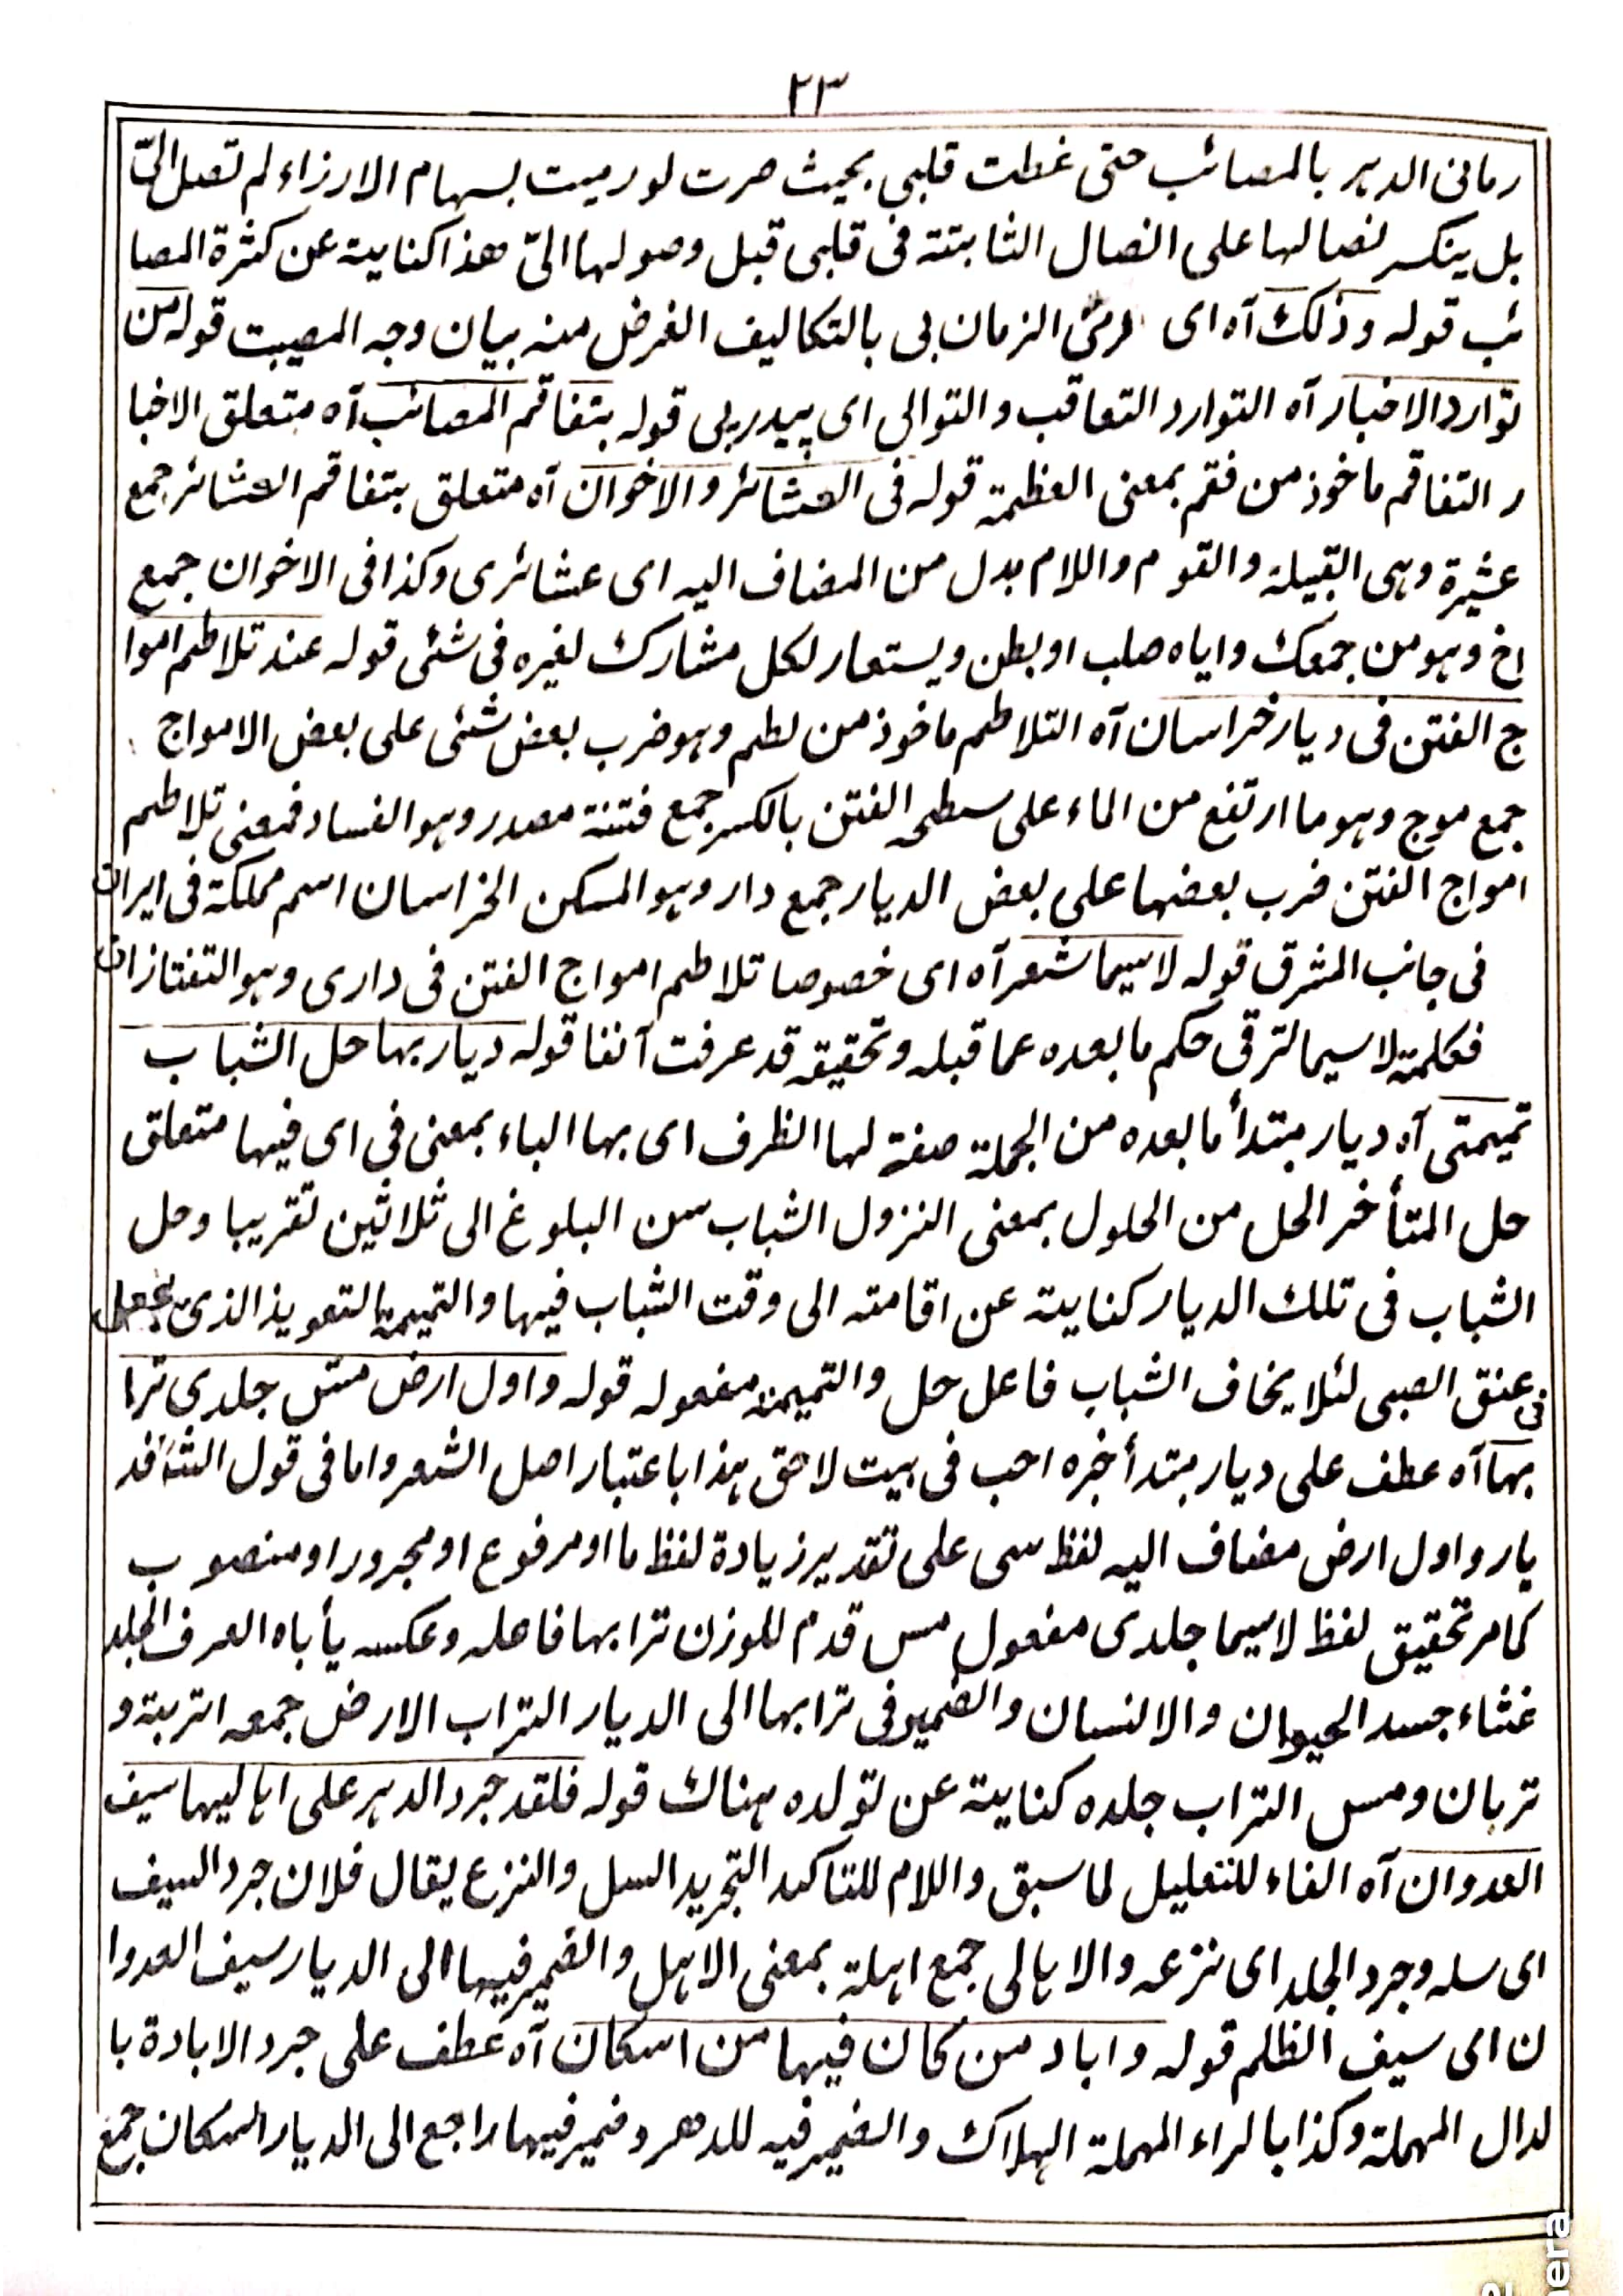 ٢٣
رمانی الدہر بالمصائب حتی غطت قلبی بحیث صرت لو رمیت بسہام الارزاء لم تصل الیّ
بل ینکسر نصالہا علی النصال الثابتۃ فی قلبی قبل وصولہا الیّ ھذا کنایۃ عن کثرۃ المصا
ئب قولہ وذلک آہ ای رمی الزمان بی بالتکالیف الغرض منہ بیان وجہ المصیبت قولہ من
توارد الاخبار آہ التوارد التعاقب والتوالی ای پیدرپی قولہ بتفاقم المصائب آہ متعلق الاخبا
ر التفاقم ماخوذ من فقم بمعنی العظمۃ قولہ فی العشائر والاخوان آہ متعلق بتفاقم العشائر جمع
عشیرۃ وہی القبیلۃ والقوم واللام بدل من المضاف الیہ ای عشائری وکذا فی الاخوان جمع
اخ وہو من جمعک وایاہ صلب او بطن ویستعار لکل مشارک لغیرہ فی شئی قولہ عند تلاطم اموا
ج الفتن فی دیار خراسان آہ التلاطم ماخوذ من لطم وہو ضرب بعض شئی علی بعض الامواج
جمع موج وہو ما ارتفع من الماء علی سطحہ الفتن بالکسر جمع فتنۃ مصدر وہو الفساد فمعنی تلاطم
امواج الفتن ضرب بعضہا علی بعض الدیار جمع دار وہو المسکن الخراسان اسم مملکۃ فی ایران
فی جانب المشرق قولہ لاسیما شعر آہ ای خصوصا تلاطم امواج الفتن فی داری وہو التفتازان
فکلمۃ لاسیما لترقی حکم ما بعدہ عما قبلہ وتحقیقہ قد عرفت آنفا قولہ دیار بہا حل الشباب
تمیمتی آہ دیار مبتدأ ما بعدہ من الجملۃ صفۃ لہا الظرف ای بہا الباء بمعنی فی ای فیہا متعلق
حل المتأخر الحل من الحلول بمعنی النزول الشباب سن البلوغ الی ثلاثین تقریبا وحل
الشباب فی تلک الدیار کنایۃ عن اقامتہ الی وقت الشباب فیہا والتمیمۃ التعویذ الذی یجعل
فی عنق الصبی لئلا یخاف الشباب فاعل حل والتمیمۃ مفعولہ قولہ واول ارض مس جلدی ترا
بہا آہ عطف علی دیار مبتدأ خبرہ احب فی بیت لاحق ہذا باعتبار اصل الشعر واما فی قول الشا فد
یار واول ارض مضاف الیہ لفظ سی علی تقدیر زیادۃ لفظ ما او مرفوع او مجرور او منصوب
کما مر تحقیق لفظ لاسیما جلدی مفعول مس قدم للوزن ترابہا فاعلہ وعکسہ یأباہ العرف الجلد
غشاء جسد الحیوان والانسان والضمیر فی ترابہا الی الدیار التراب الارض جمعہ اتربۃ و
تربان ومس التراب جلدہ کنایۃ عن تولدہ ہناک قولہ فلقد جرد الدہر علی اہالیہا سیف
العدوان آہ الفاء للتعلیل لما سبق واللام للتاکید التجرید السل والنزع یقال فلان جرد السیف
ای سلہ وجرد الجلد ای نزعہ والاہالی جمع اہلۃ بمعنی الاہل والضمیر فیہا الی الدیار سیف العدوا
ن ای سیف الظلم قولہ واباد من کان فیہا من اسکان آہ عطف علی جرد الابادۃ با
لدال المہملۃ وکذا بالراء المہملۃ الہلاک والضمیر فیہ للدھر وضمیر فیہا راجع الی الدیار السکان جمع